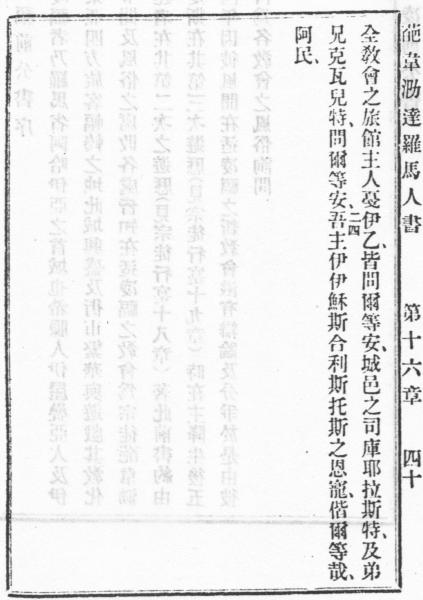 葩韋泐達羅馬人書 第十六章 四十
全敎會之旅館主人戞伊乙、皆問爾等安、城邑之司庫耶拉斯特、及弟
兄克瓦兒特、問爾等安、二四吾主伊伊穌斯合利斯托斯之恩寵、偕爾等哉、
阿民、